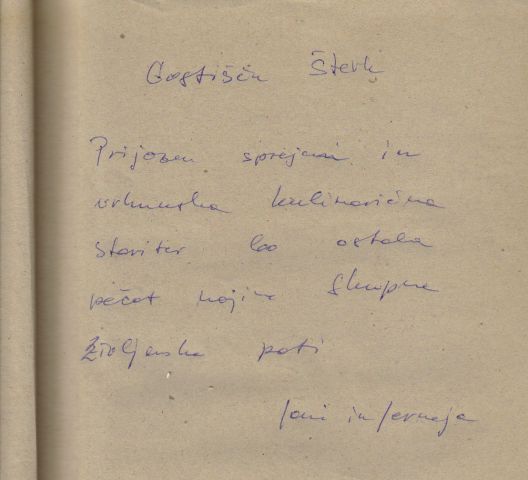 Gostišču Šterk
Prijazen sprejem in
vrhunska kulinarična
storitev bo ostala
pečat najine skupne
življenske poti
Joži in Jerneja